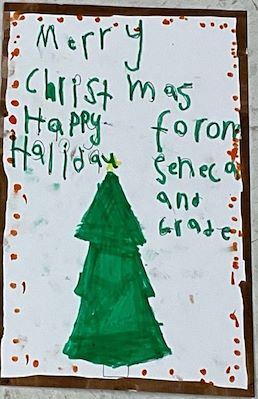 Merry
Christmas
Happy
Haliday
forom
Seneca
and
Grade